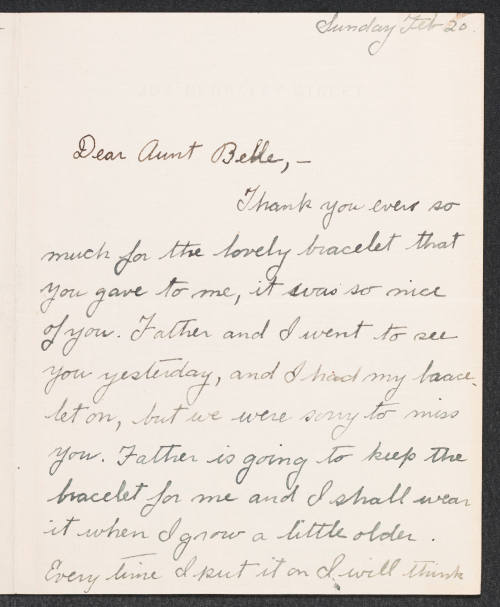 Sunday Feb 20.
Dear Aunt Belle, –
Thank you ever so
much for the lovely bracelet that
you gave to me, it was so nice
of you. Father and I went to see
you yesterday, and I had my brace-
let on, but we were sorry to miss
you. Father is going to keep the
bracelet for me and I shall wear
it when I grow a little older.
Every time I put it on I will think